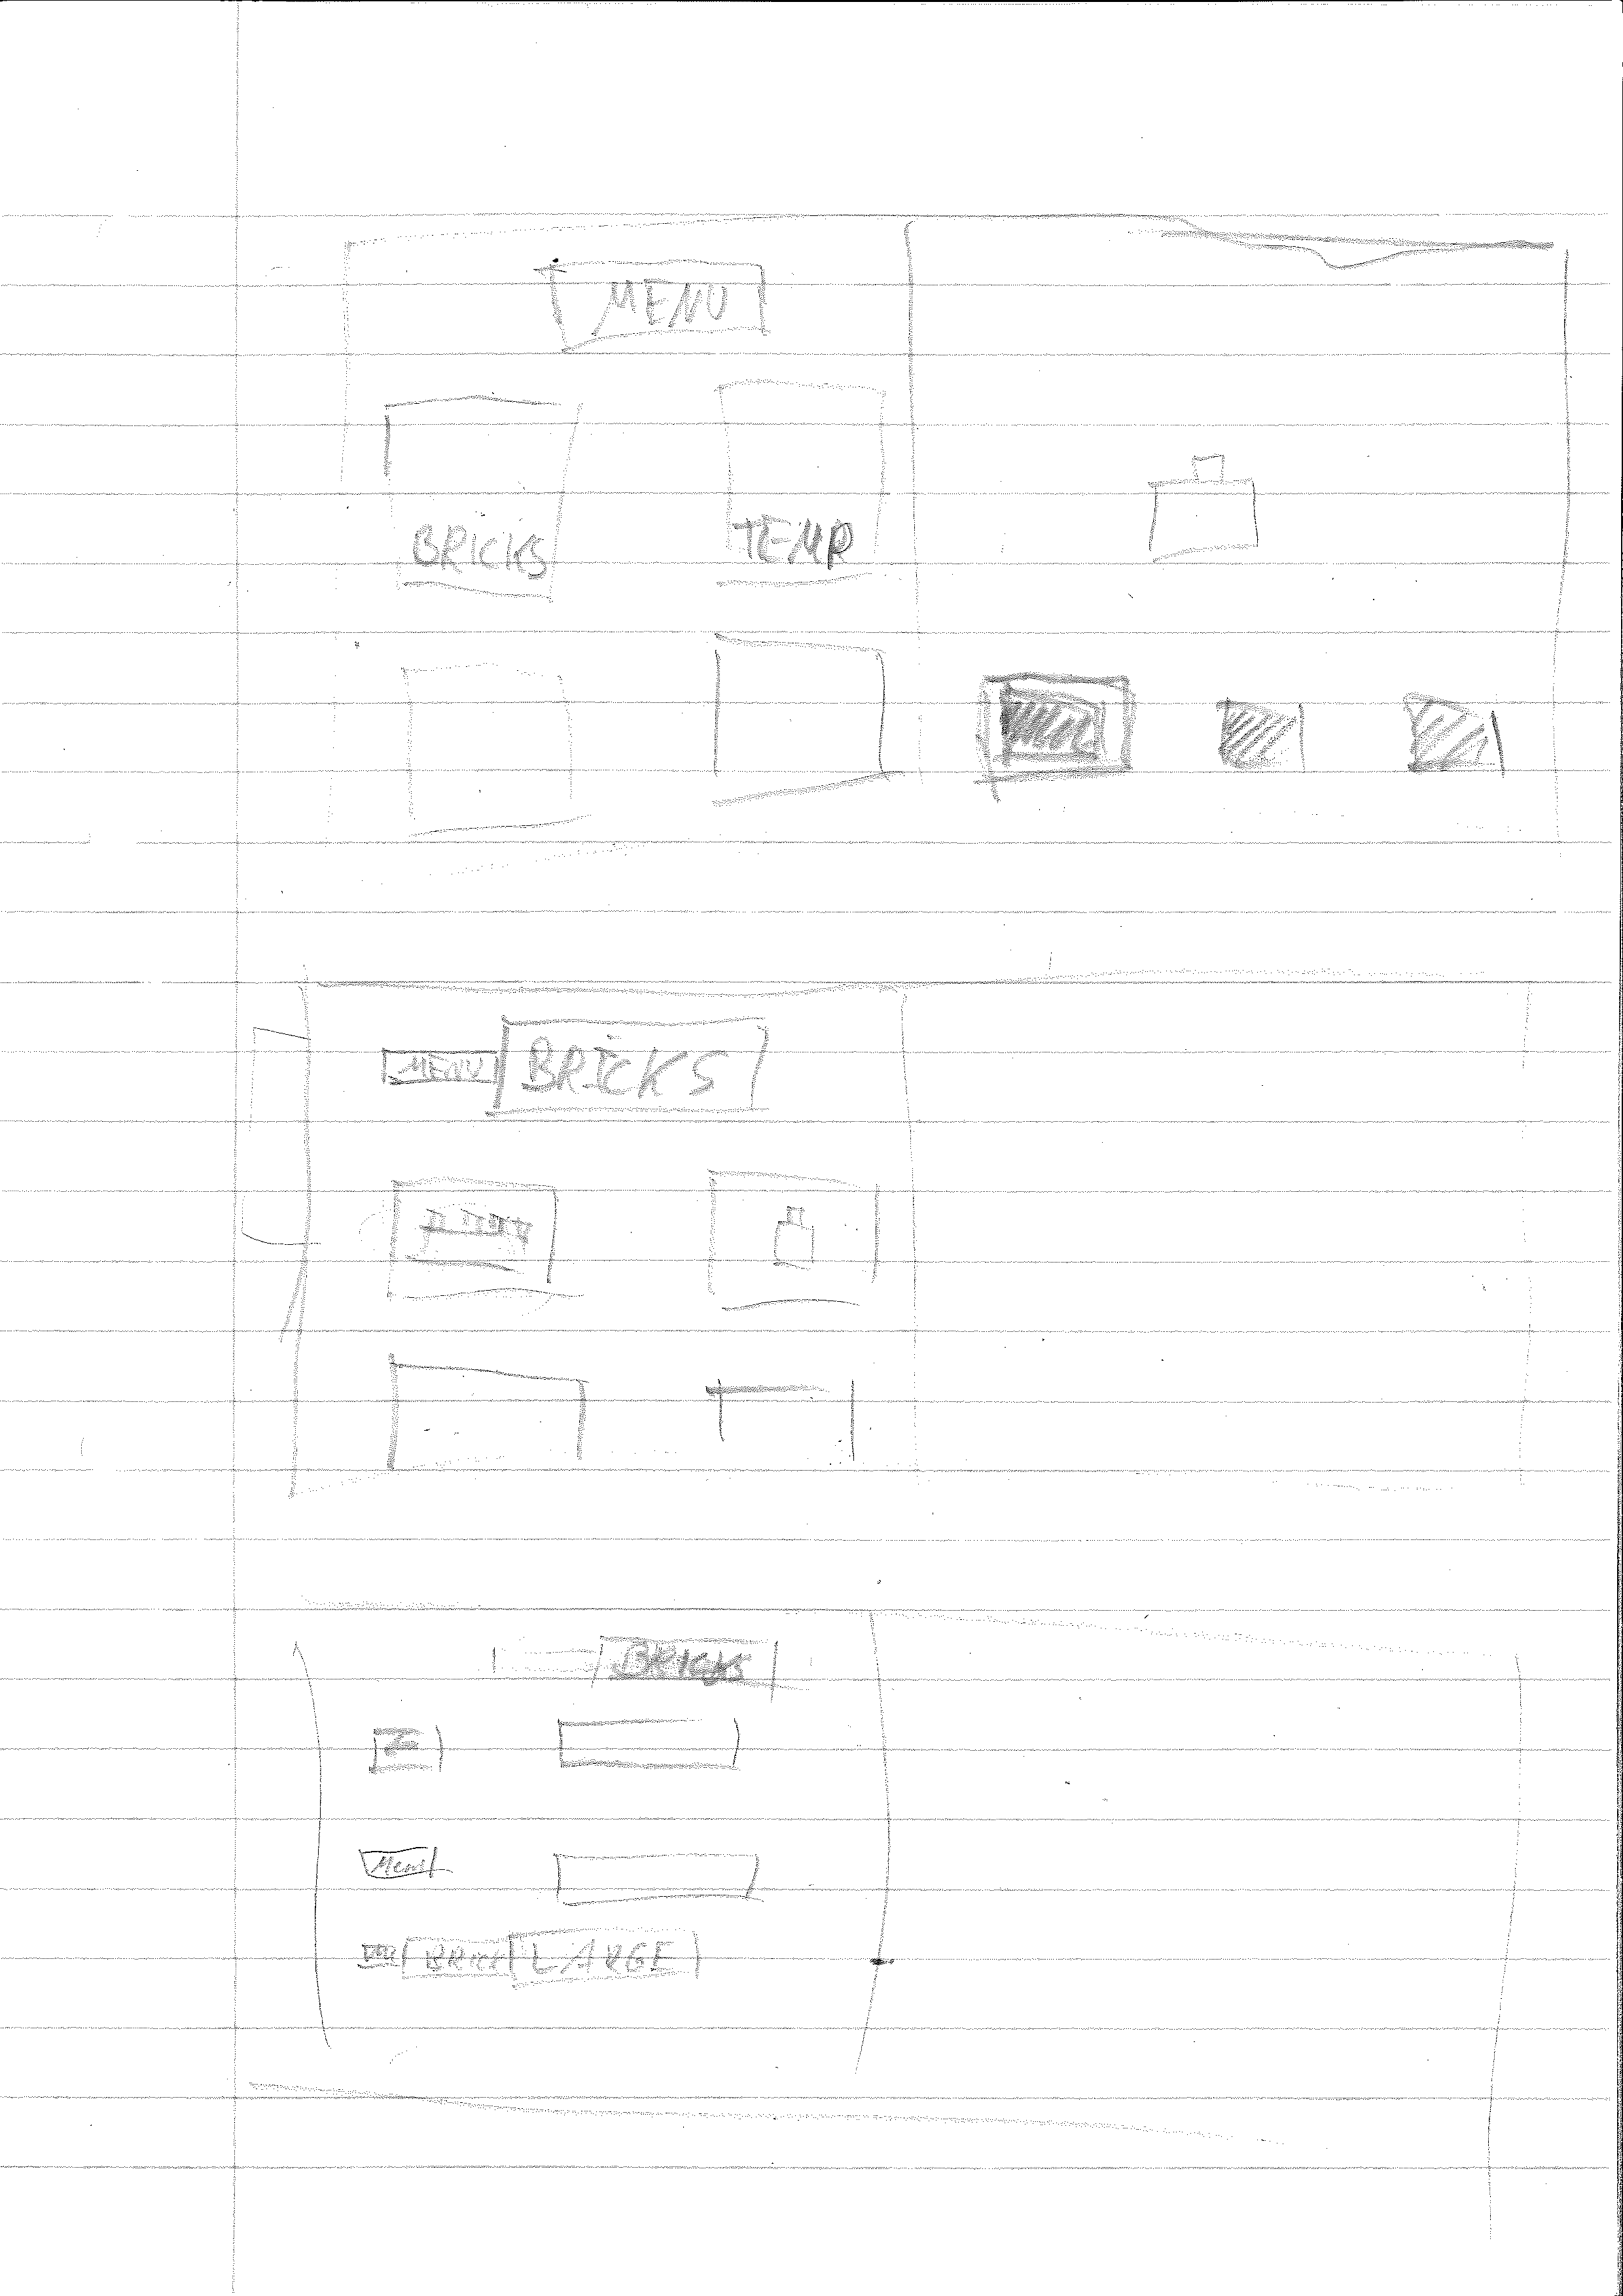 MENU
BRICKS TEMP
MENU BRICKS
BRICKS
Menu
BRICK LARGE